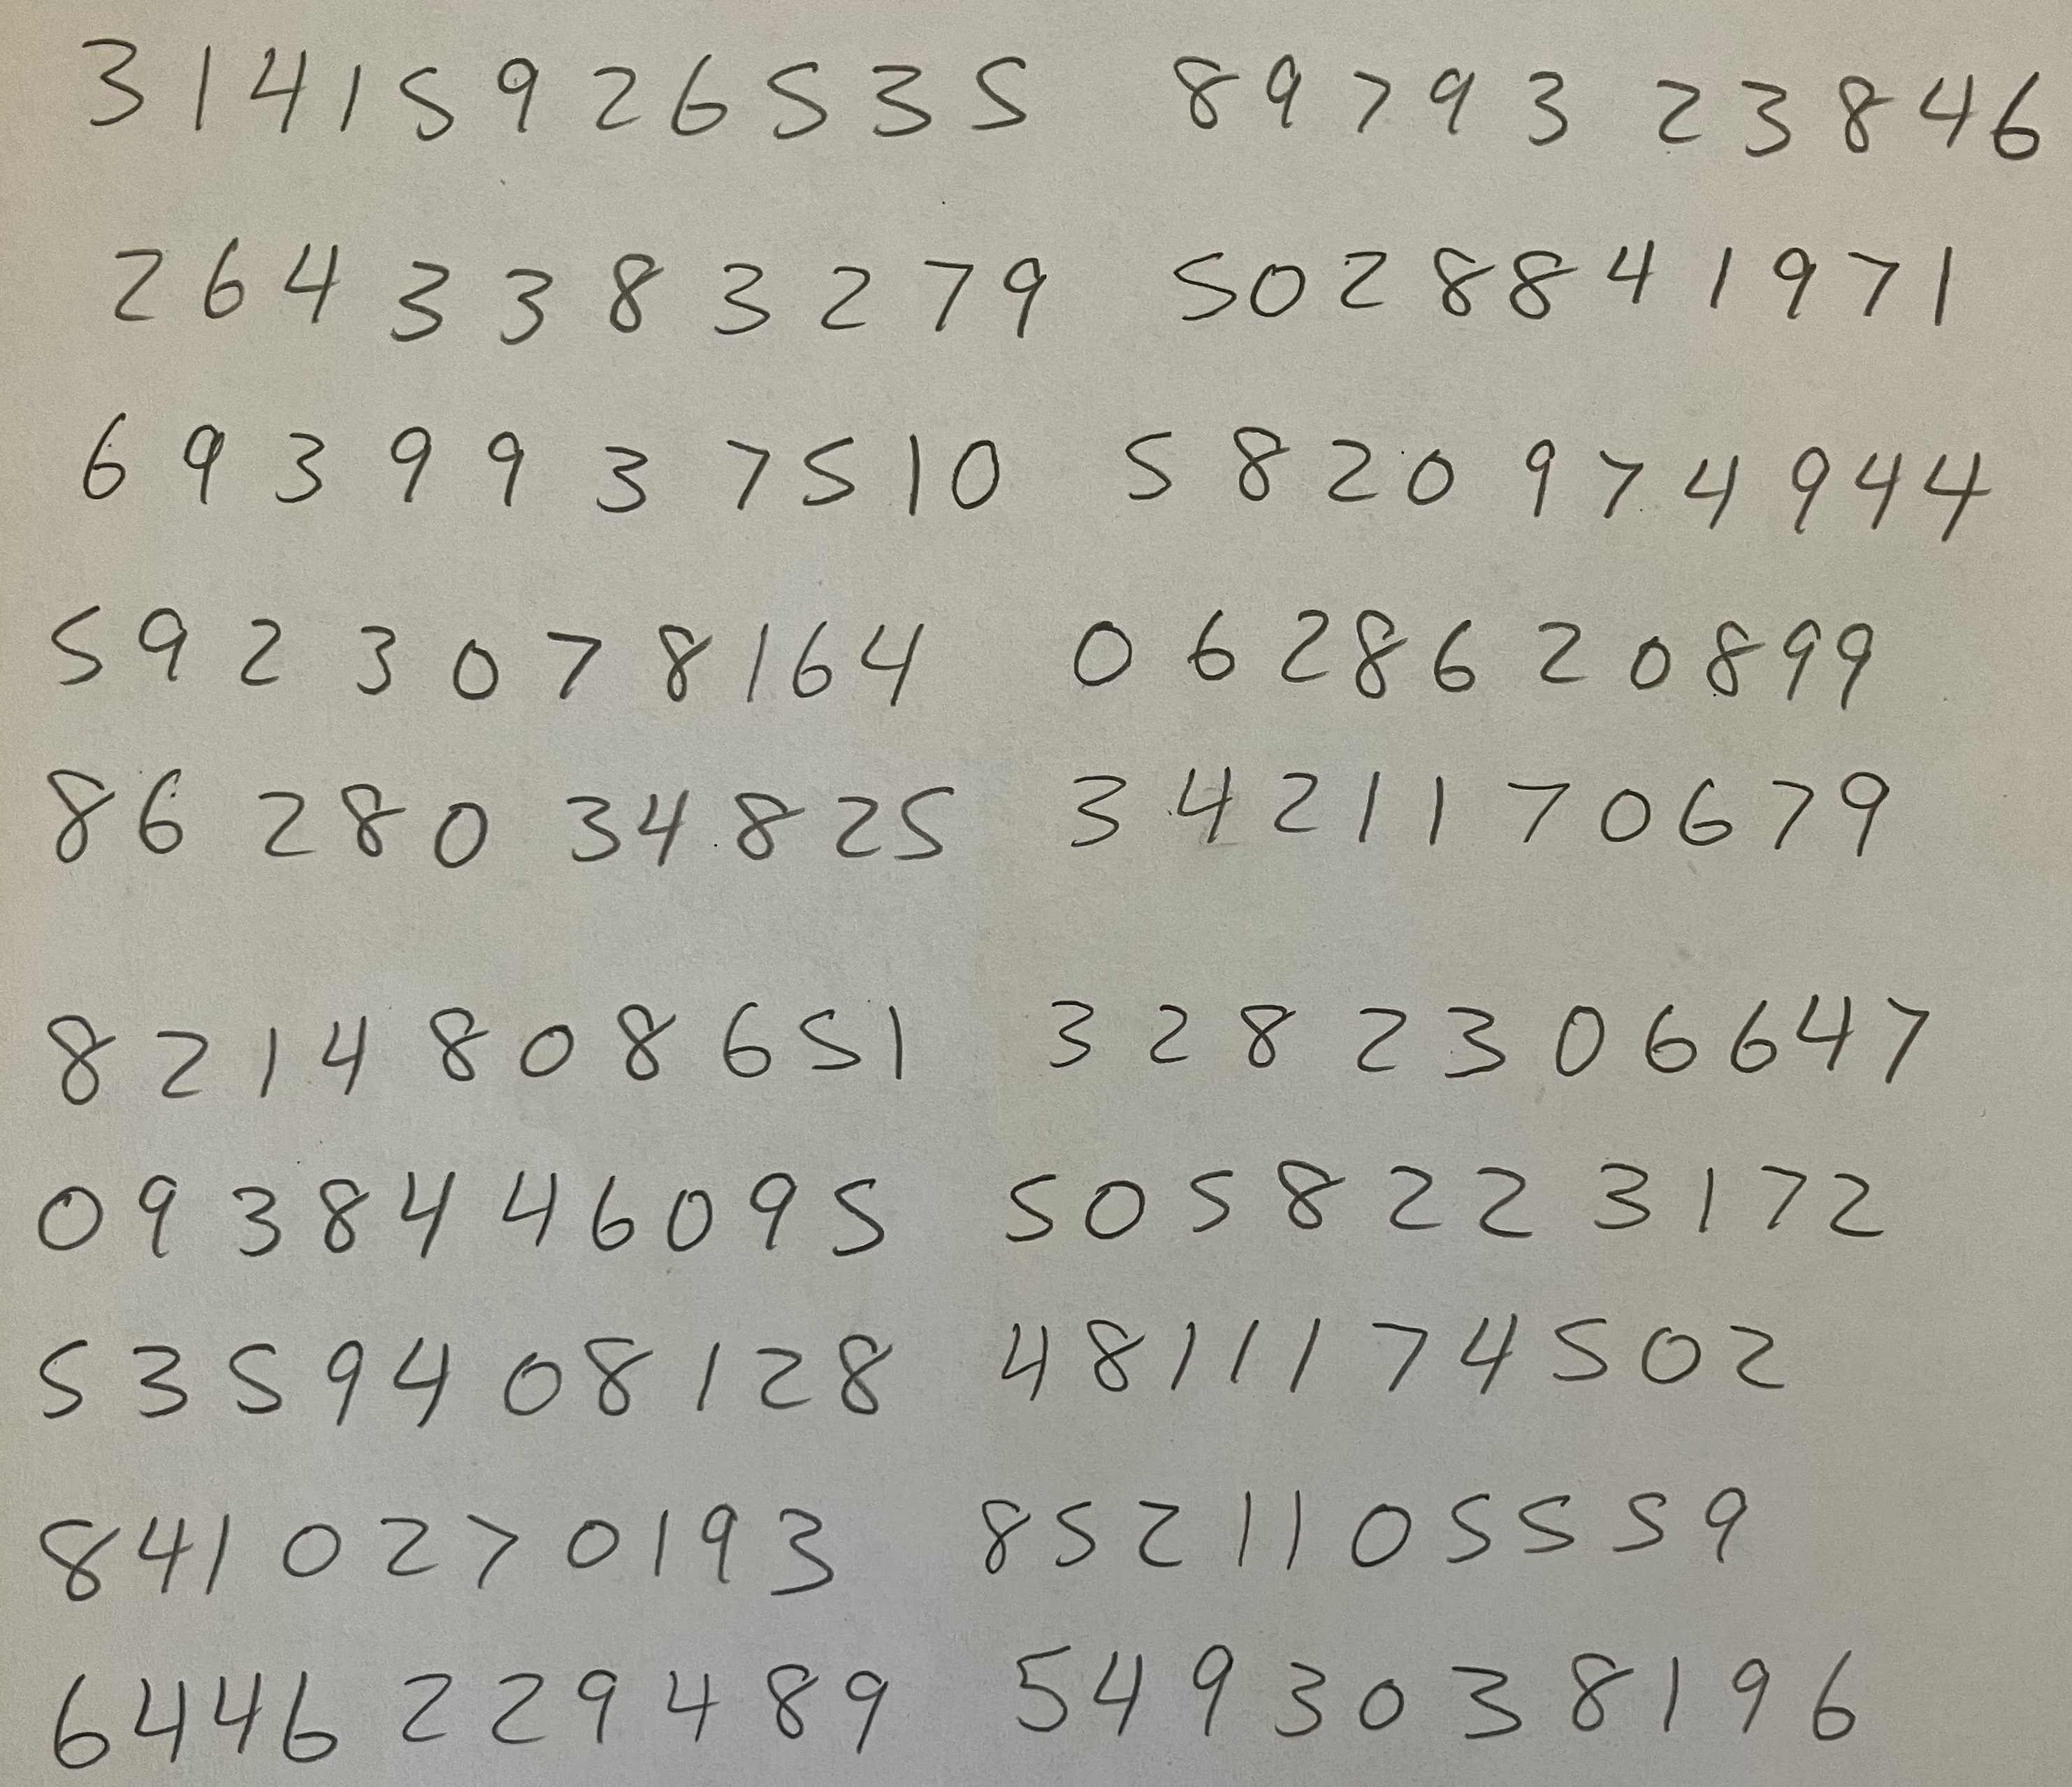 31415926535 89793 23846
2643383279 5028841971
6939937510 5820974944
5923078164 0628620899
86 280 34825 3421170679
8214808651 3282306647
0938446095 5058223172
5359408128 4811174502
8410270193 8521105559
6446 229489 5493038196